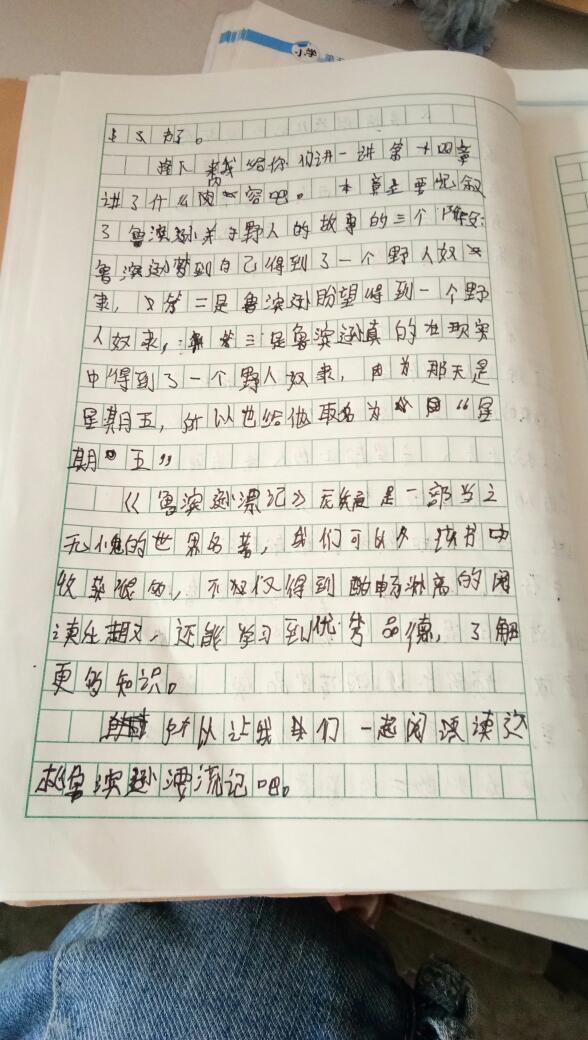 小学
接下来我给你们讲一讲第十四章
讲了什么内容吧。本章主要记叙
了鲁滨逊关于野人的故事的三个阶段:
鲁滨逊梦到自己得到了一个野人奴
隶,第二是鲁滨逊盼望得到一个野
人奴隶,第三是鲁滨逊真的在现实
中得到了一个野人奴隶,因为那天是
星期五,所以也给他取名为“星
期五”
《鲁滨逊漂记》无疑是一部当之
无愧的世界名著,我们可以从该书中
收获很多,不仅仅得到酣畅淋漓的阅
读生趣,还能学习到优秀品德,了解
更多知识。
所以让我们一起阅读读这
本鲁滨逊漂流记吧。